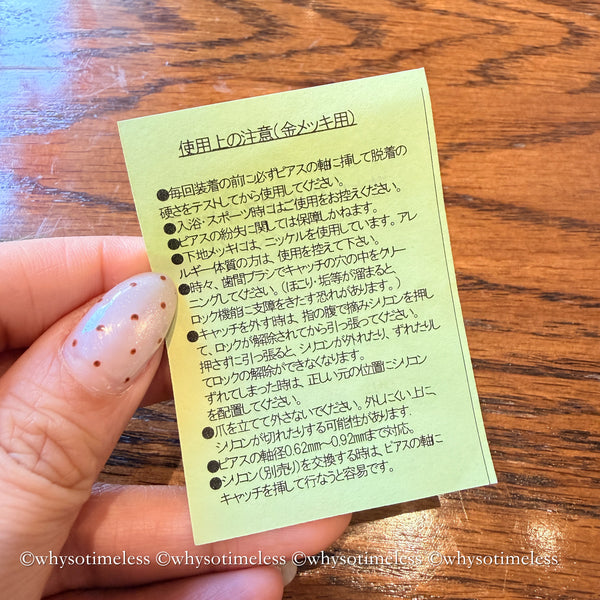 使用上の注意(金メッキ用)
●毎回装着の前に必ずピアスの軸に挿して脱着の
硬さをテストしてから使用してください。
●入浴・スポーツ時にはご使用をお控えください。
●ピアスの紛失に関しては保障しかねます。
●下地メッキには、ニッケルを使用しています。アレ
ルギー体質の方は、使用を控えて下さい。
●時々、歯間ブラシでキャッチの穴の中をクリー
ニングしてください。(ほこり・垢等が溜まると、
ロック機能に支障をきたす恐れがあります。)
●キャッチを外す時は、指の腹で摘みシリコンを押し
て、ロックが解除されてから引っ張ってください。
押さずに引っ張ると、シリコンが外れたり、ずれたりし
てロックの解除ができなくなります。
ずれてしまった時は、正しい元の位置にシリコン
を配置してください。
●爪を立てて外さないでください。外しにくい上に、
シリコンが切れたりする可能性があります。
●ピアスの軸径0.62mm～0.92mmまで対応。
●シリコン(別売り)を交換する時は、ピアスの軸に
キャッチを挿して行なうと容易です。
©whysotimeless ©whysotimeless ©whysotimeless ©whysotimeless